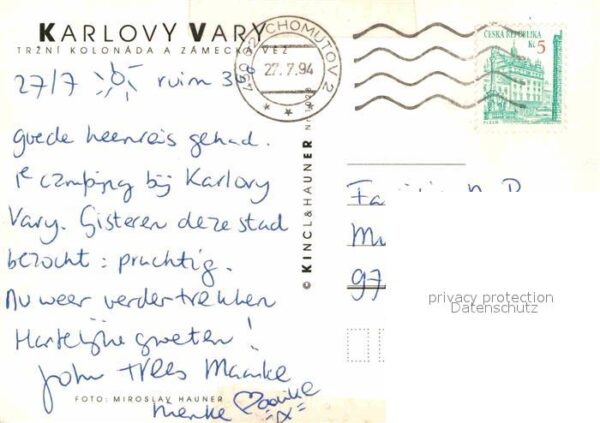 KARLOVY VARY
TRŽNÍ KOLONÁDA A ZÁMECKÁ VĚŽ
CHOMUTOV 2
27.7.94
ČESKÁ REPUBLIKA
Kč 5
PLZEŇ
27/7 ruim 35°
goede heenreis gehad.
1e camping bij Karlovy
Vary. Gisteren deze stad
bezocht: prachtig.
Nu weer verder trekken
Hartelijke groeten!
John Trees Maaike
Nienke
© KINCL & HAUNER
FOTO: MIROSLAV HAUNER
97
privacy protection
Datenschutz